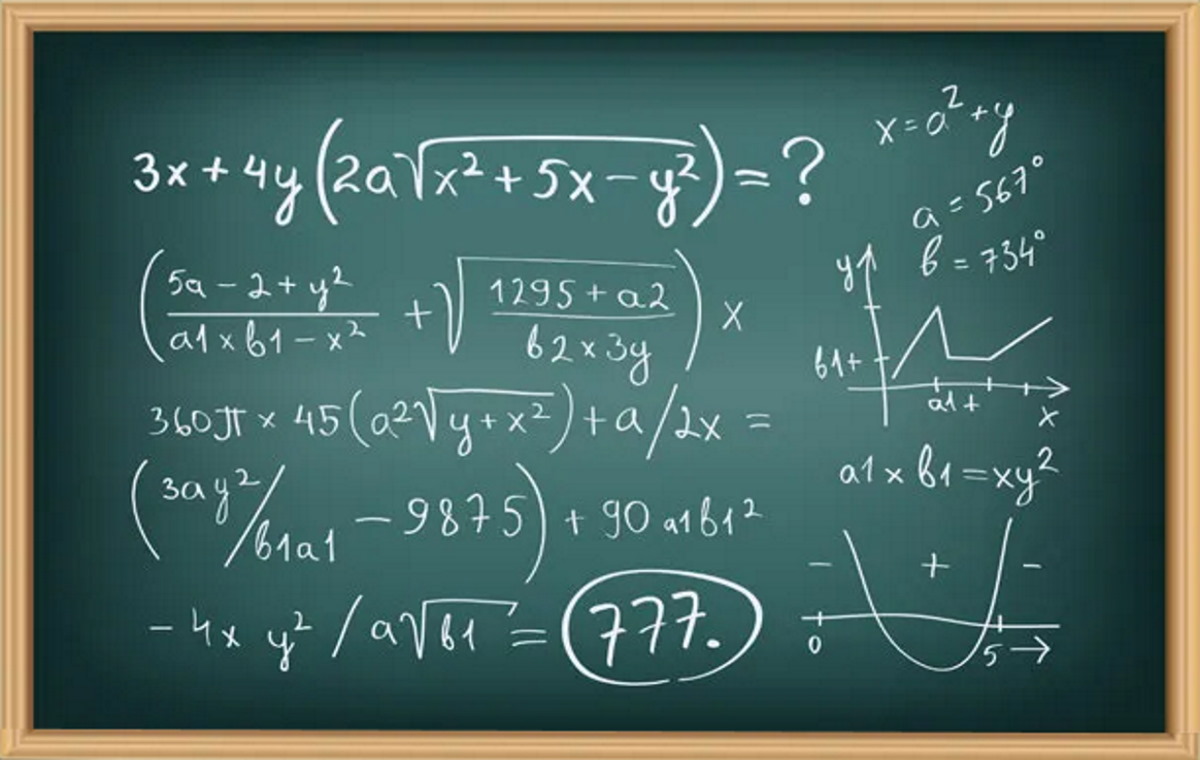 3x + 4y (2a√x² + 5x - y²) = ?
(5a - 2 + y² / a1 x b1 - x² + √1295 + a2 / b2 x 3y) x
360π x 45 (a2√y + x²) + a/2x =
(3ay²/b1a1 - 9875) + 90 a1b1²
- 4x y² / a√b1 = 777.
x = a² + y
a = 567°
b = 734°
y
b1+
a1+
x
a1 x b1 = xy²
- + -
0 5